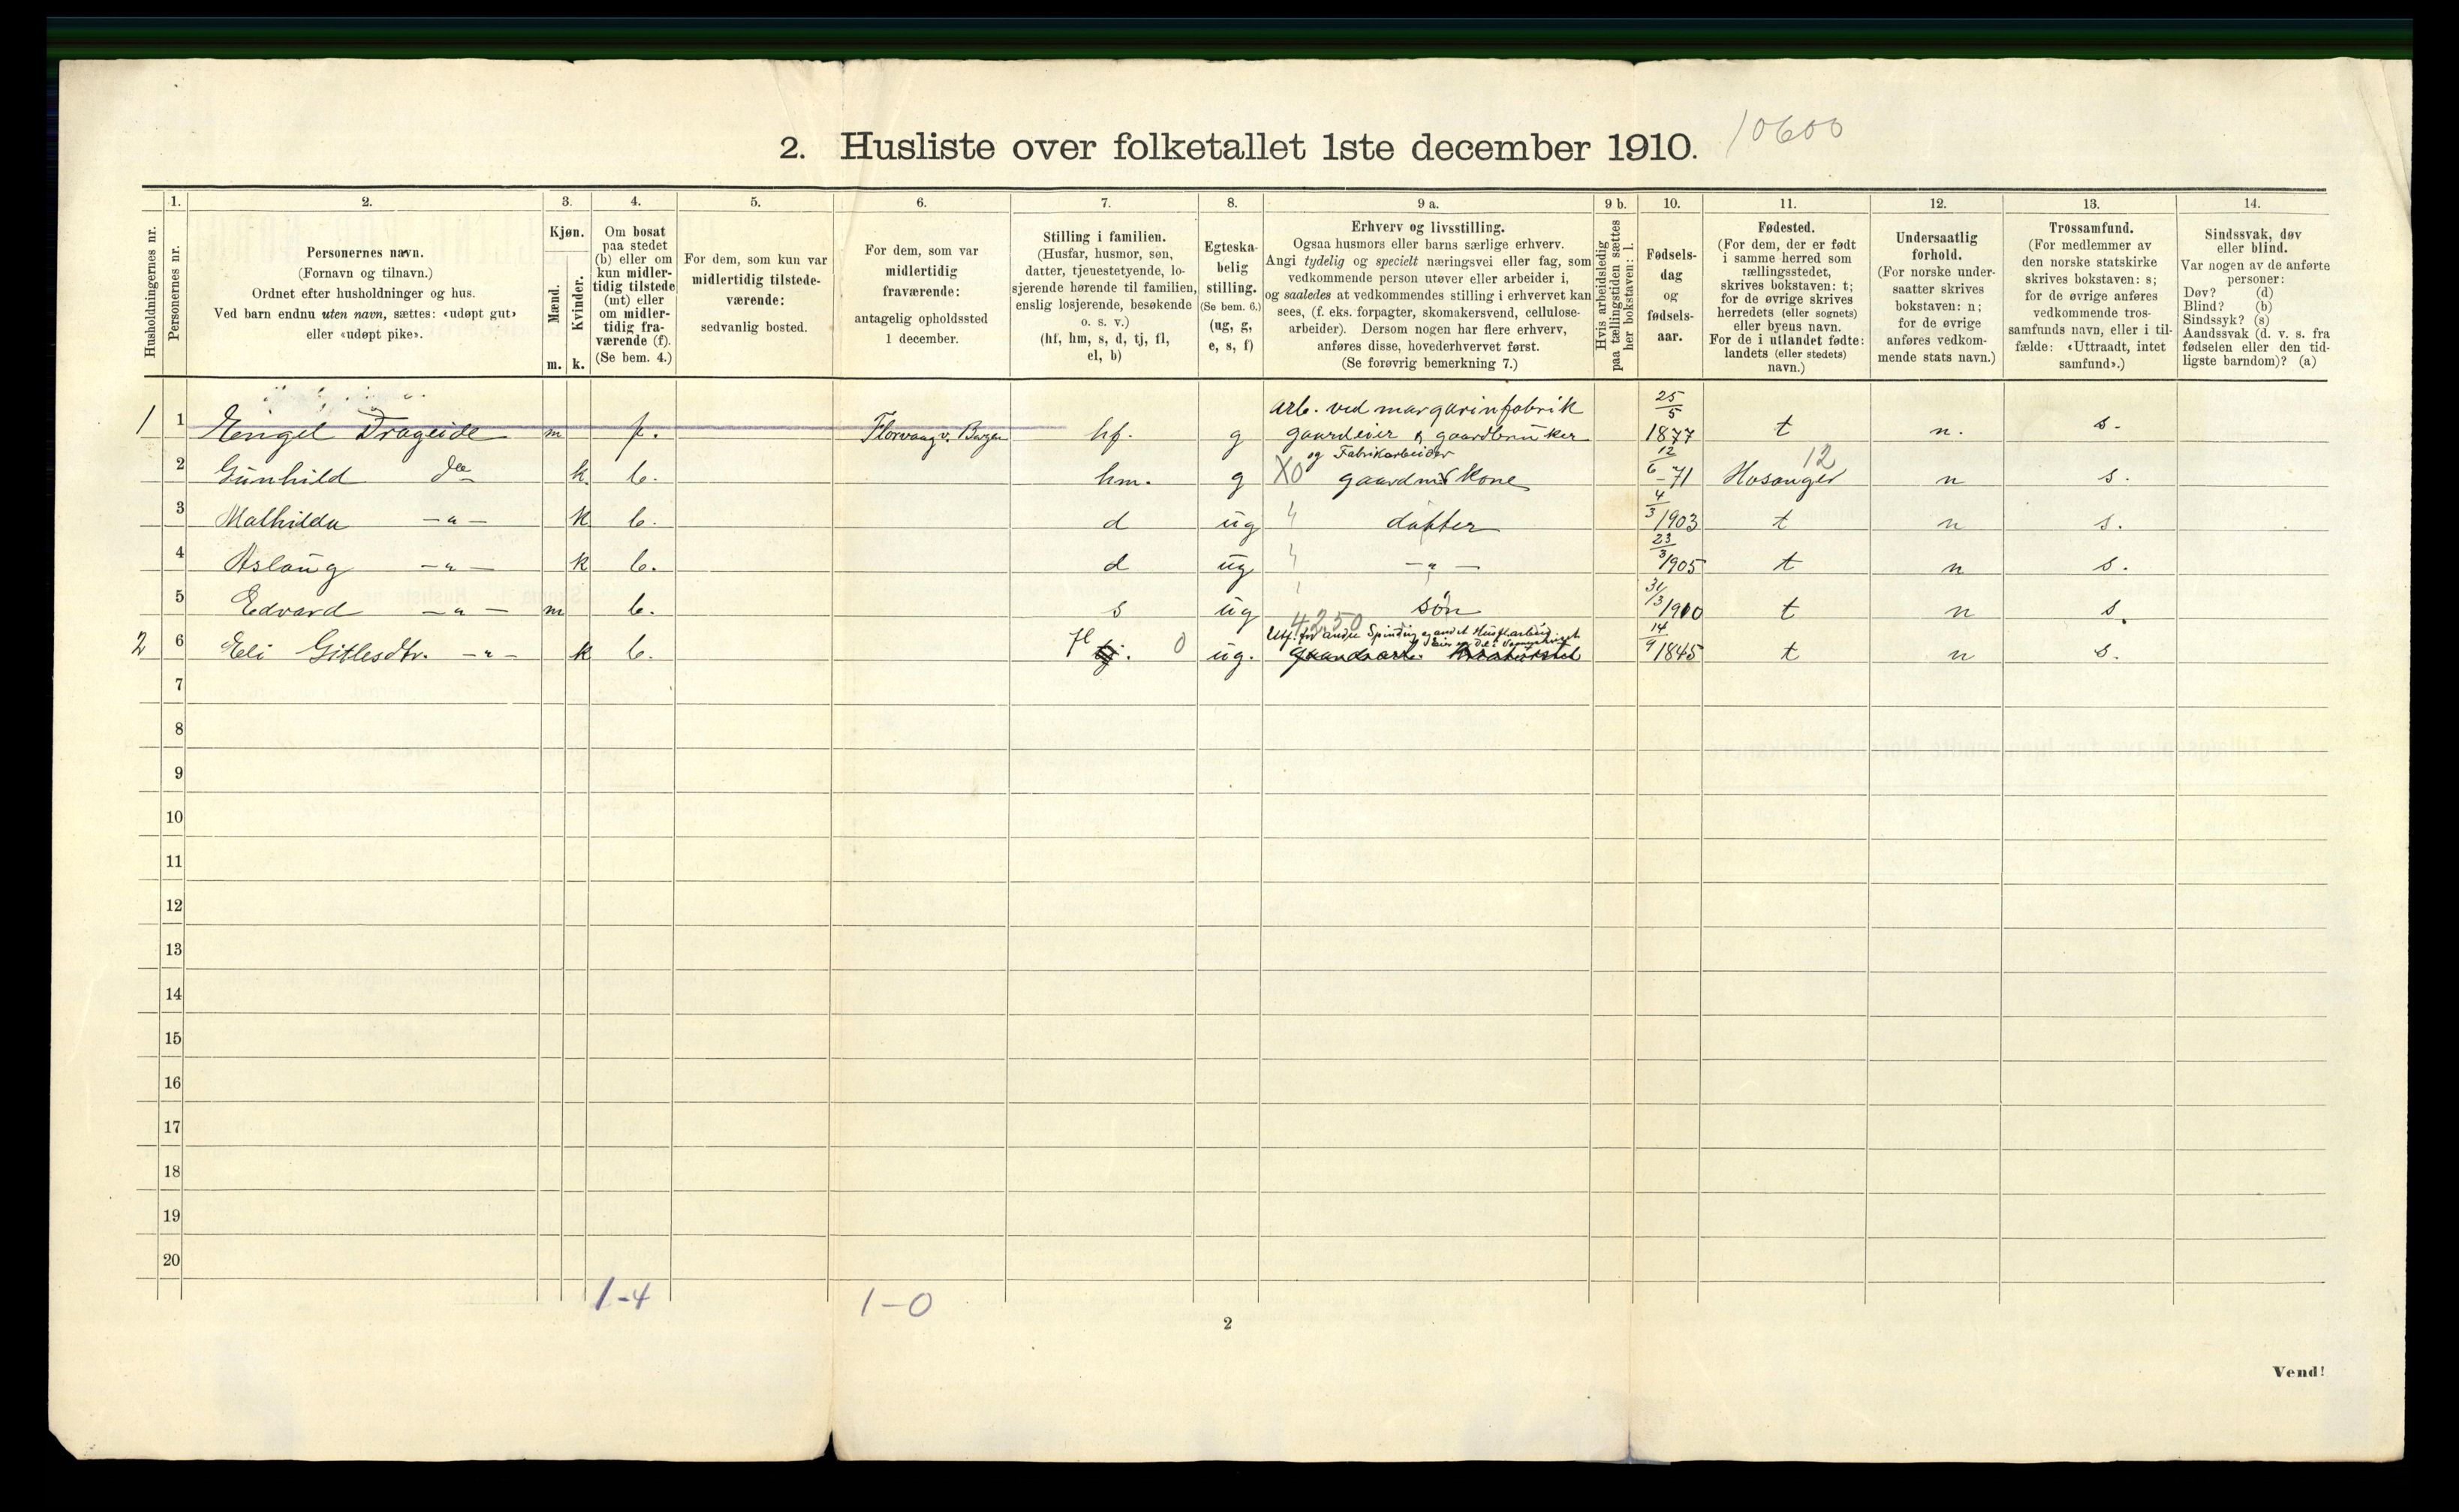 2. Husliste over folketallet 1ste december 1910.
10600
Husholdningernes nr.
1.
Personernes nr.
2.
Personernes navn.
(Fornavn og tilnavn.)
Ordnet efter husholdninger og hus.
Ved barn endnu uten navn, sættes: «udøpt gut»
eller «udøpt pike».
3.
Kjøn.
Mænd.
m.
Kvinder.
k.
4.
Om bosat
paa stedet
(b) eller om
kun midler-
tidig tilstede
(mt) eller
om midler-
tidig fra-
værende (f).
(Se bem. 4.)
5.
For dem, som kun var
midlertidig tilstede-
værende:
sedvanlig bosted.
6.
For dem, som var
midlertidig
fraværende:
antagelig opholdssted
1 december.
7.
Stilling i familien.
(Husfar, husmor, søn,
datter, tjenestetyende, lo-
sjerende hørende til familien,
enslig losjerende, besøkende
o. s. v.)
(hf, hm, s, d, tj, fl,
el, b)
8.
Egteska-
belig
stilling.
(Se bem. 6.)
(ug, g,
e, s, f)
9 a.
Erhverv og livsstilling.
Ogsaa husmors eller barns særlige erhverv.
Angi tydelig og specielt næringsvei eller fag, som
vedkommende person utøver eller arbeider i,
og saaledes at vedkommendes stilling i erhvervet kan
sees, (f. eks. forpagter, skomakersvend, cellulose-
arbeider). Dersom nogen har flere erhverv,
anføres disse, hovederhvervet først.
(Se forøvrig bemerkning 7.)
9 b.
Hvis arbeidsledig
paa tællingstiden sættes
her bokstaven: l.
10.
Fødsels-
dag
og
fødsels-
aar.
11.
Fødested.
(For dem, der er født
i samme herred som
tællingsstedet,
skrives bokstaven: t;
for de øvrige skrives
herredets (eller sognets)
eller byens navn.
For de i utlandet fødte:
landets (eller stedets)
navn.)
12.
Undersaatlig
forhold.
(For norske under-
saatter skrives
bokstaven: n;
for de øvrige
anføres vedkom-
mende stats navn.)
13.
Trossamfund.
(For medlemmer av
den norske statskirke
skrives bokstaven: s;
for de øvrige anføres
vedkommende tros-
samfunds navn, eller i til-
fælde: «Uttraadt, intet
samfund».)
14.
Sindssvak, døv
eller blind.
Var nogen av de anførte
personer:
Døv? (d)
Blind? (b)
Sindssyk? (s)
Aandssvak (d. v. s. fra
fødselen eller den tid-
ligste barndom)? (a)
arb. ved margarinfabrik 25/5
1 1 Engel Drageide m f. Florvaag v. Bergen hf. g gaardeier & gaardbruker 1877 t n. s.
og Fabrikarbeider 12
2 Gunhild do k b. hm. g X0 gaardm kone 12/6 -71 Hosanger n s.
3 Mathilda —„— k b. d ug datter 4/3 1903 t n s.
4 Aslaug —„— k b. d ug —„— 23/3 1905 t n s.
5 Edvard —„— m b. s ug søn 31/3 1910 t n s.
4250
Utf. for andre Spinding og andet Husfl.arbeid
2 6 Eli Gitlesdtr. —„— k b. fl tj. 0 ug. 14/9 1845 t n s.
7
8
9
10
11
12
13
14
15
16
17
18
19
20
1-4
1-0
2
Vend!